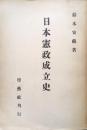 鈴木安蔵著
日本憲政成立史
学藝社刊行